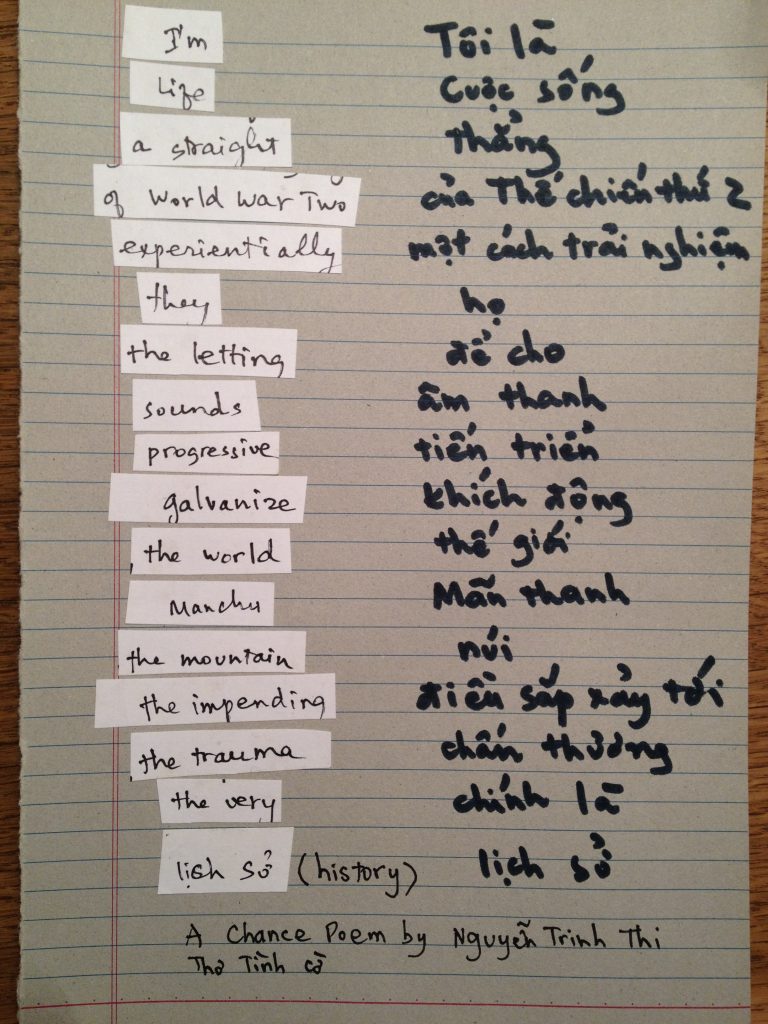 I'm Tôi là
Life Cuộc sống
a straight thẳng
of World War Two của Thế chiến thứ 2
experientially một cách trải nghiệm
they họ
the letting để cho
sounds âm thanh
progressive tiến triển
galvanize khích động
the world thế giới
Manchu Mãn thanh
the mountain núi
the impending điều sắp xảy tới
the trauma chấn thương
the very chính là
lịch sở (history) lịch sở
A Chance Poem by Nguyễn Trinh Thi
Thơ Tình cờ